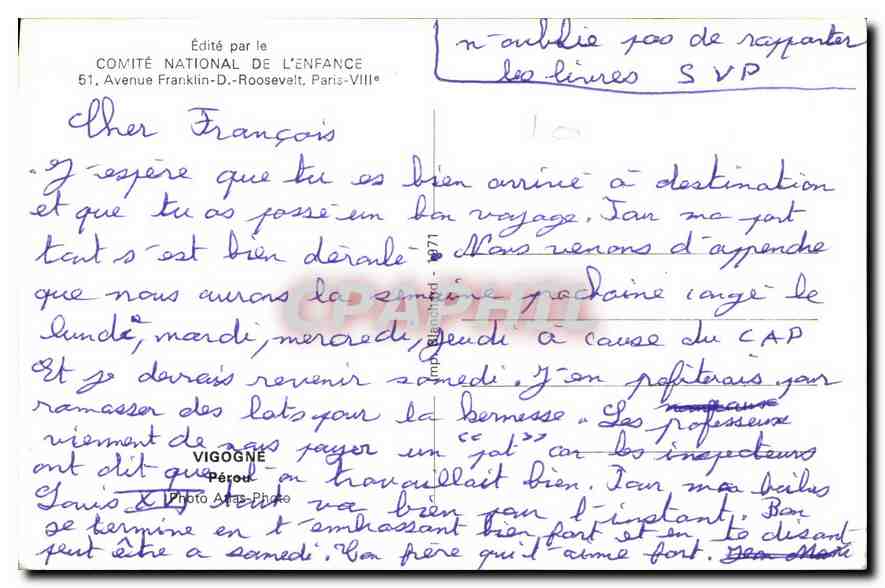 Édité par le
COMITÉ NATIONAL DE L'ENFANCE
51, Avenue Franklin-D.-Roosevelt, Paris-VIIIe
n'oublie pas de rapporter
les livres SVP
Cher François
J'espère que tu es bien arrivé à destination
et que tu as passé un bon voyage. Pour ma part
tout s'est bien déroulé. Nous venons d'apprendre
que nous aurons la semaine prochaine congé le
lundi, mardi, mercredi, jeudi à cause du CAP
Et je devrais revenir samedi. J'en profiterais pour
ramasser des lots pour la kermesse. Les professeurs
viennent de nous payer un "pot" car les inspecteurs
ont dit que l'on travaillait bien. Pour ma
Louis XV tout va bien pour l'instant. Bon
je termine en t'embrassant bien fort et en te disant
peut être a samedi. Ton frère qui t'aime fort.
VIGOGNE
Pérou
Photo Atlas-Photo
Imp. Blanchard - 1971
CPAPHIL